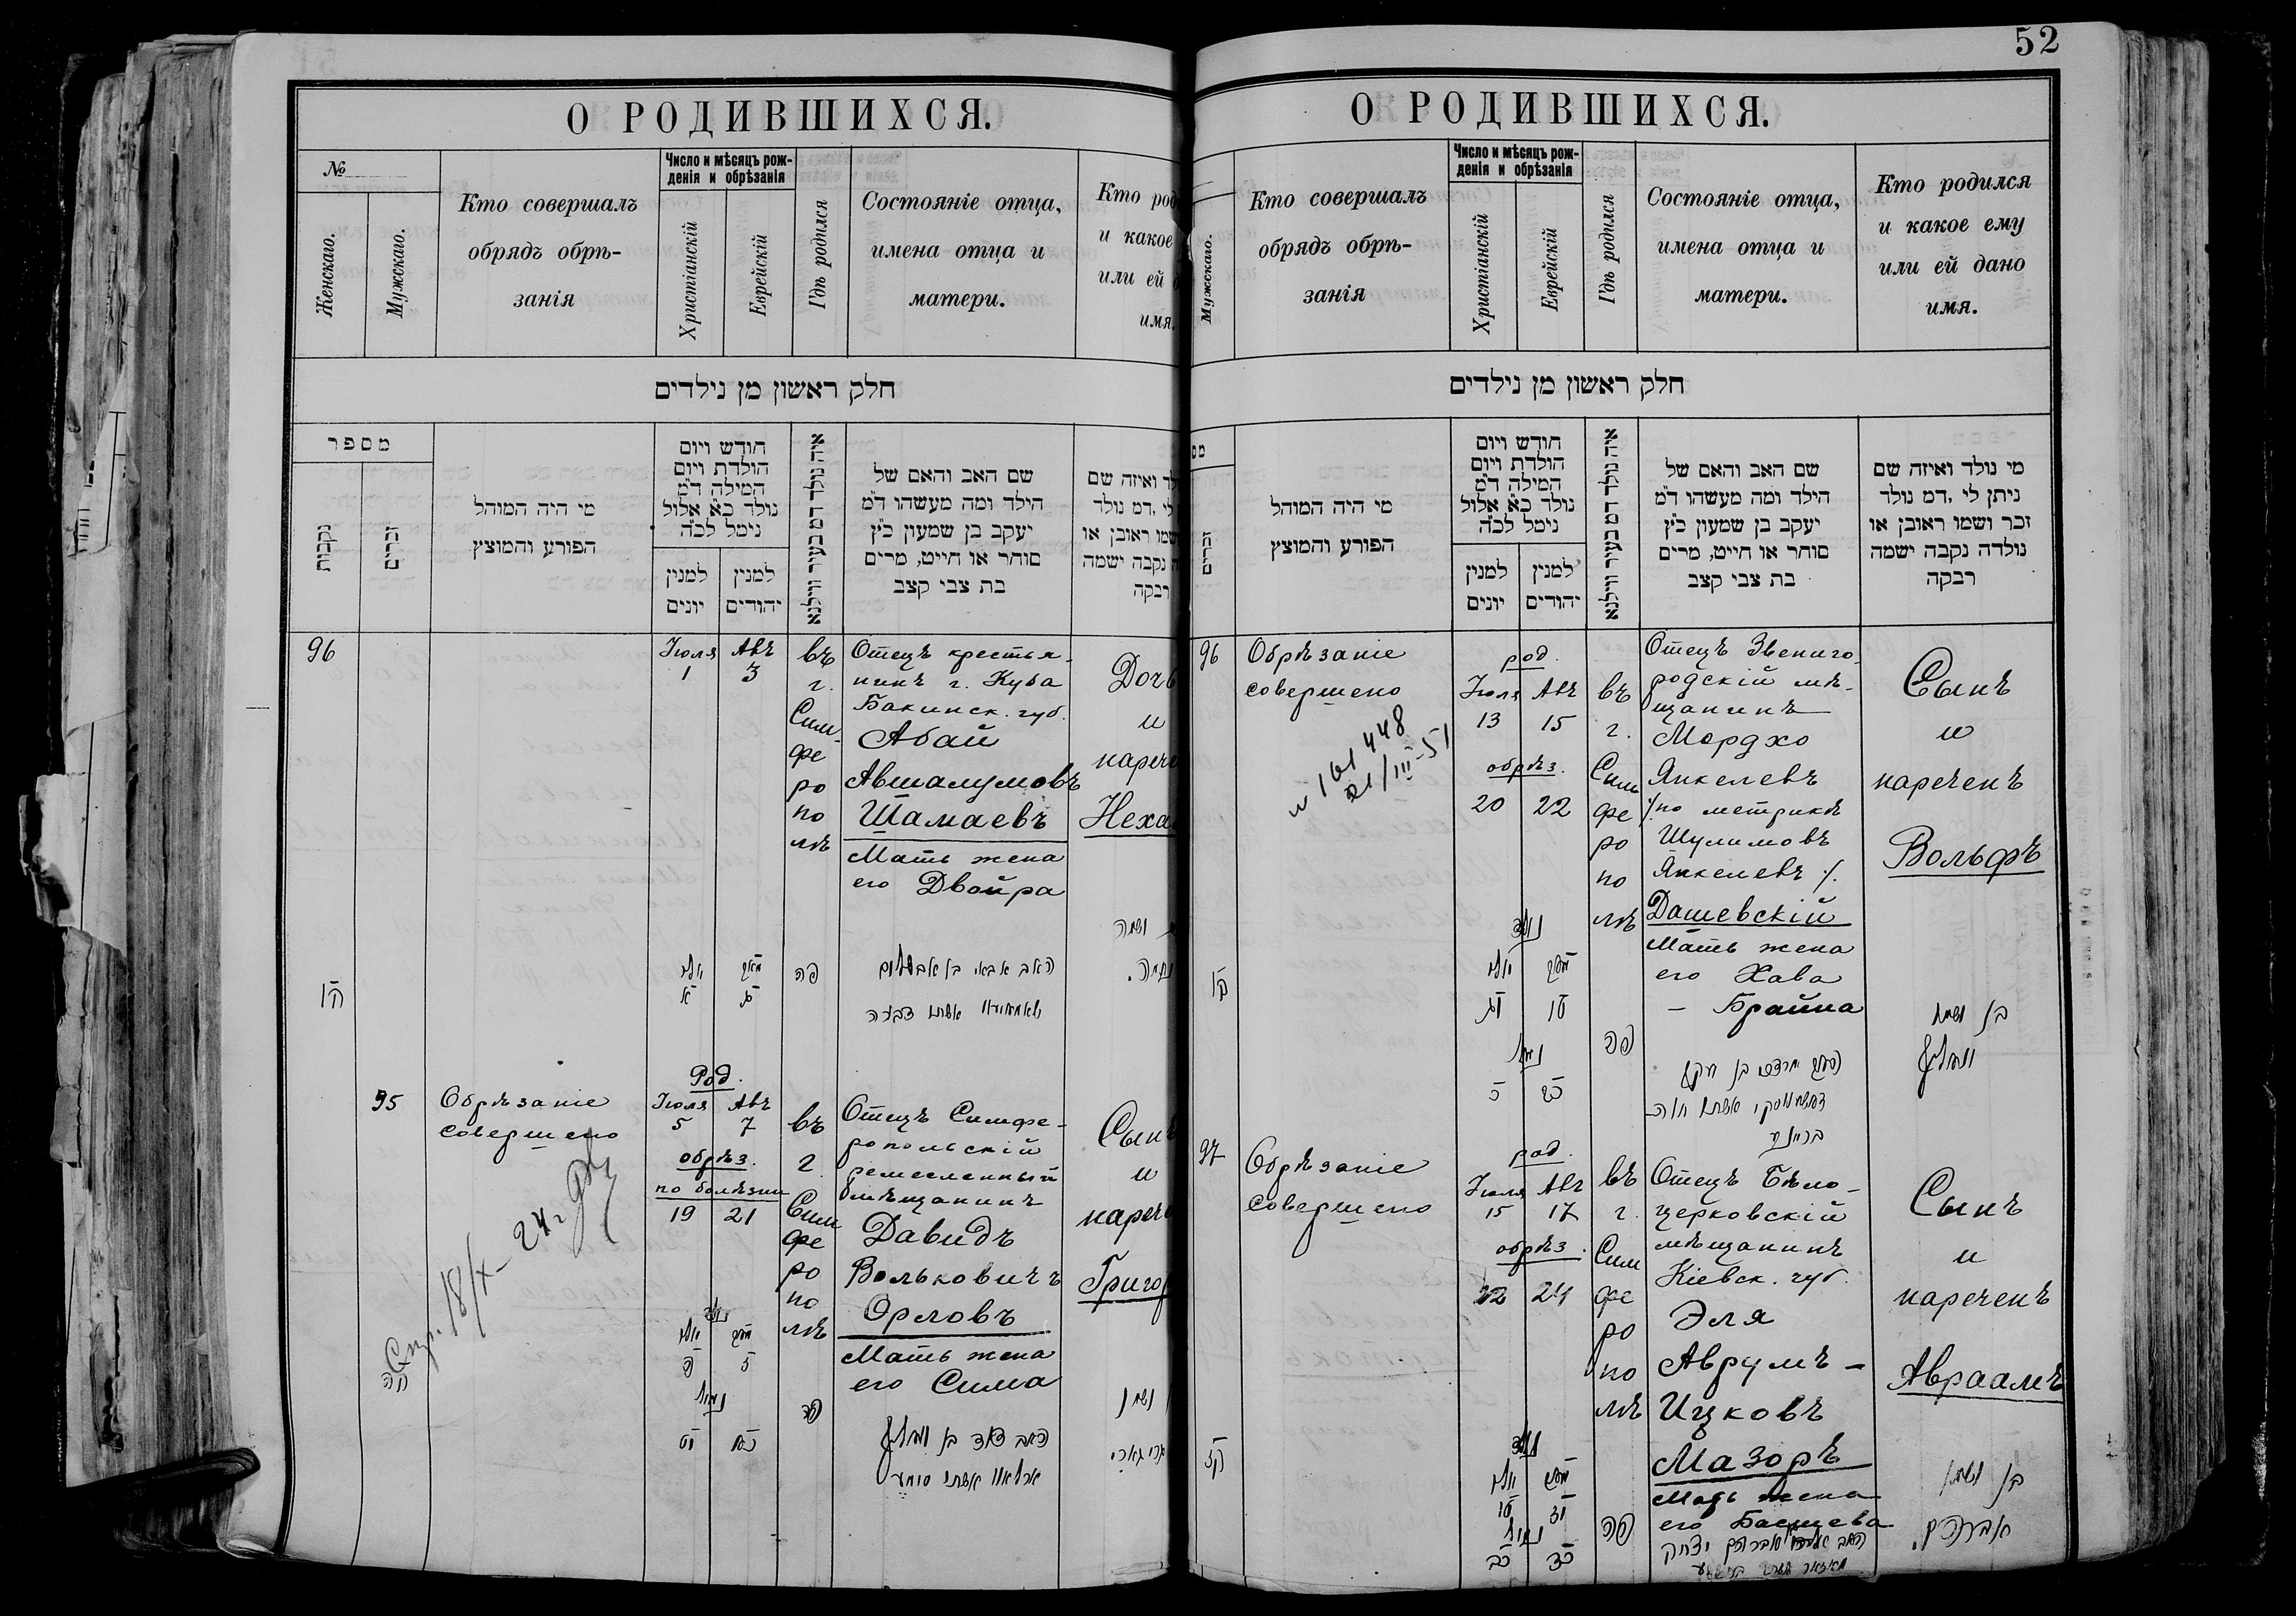 О РОДИВШИХСЯ.
№
Женскаго.
Мужскаго.
Кто совершалъ
обрядъ обрѣ-
занія
Число и мѣсяцъ рож-
денія и обрѣзанія
Христіанскій
Еврейскій
Гдѣ родился
Состояніе отца,
имена отца и
матери.
Кто род
и какое
или ей
имя.
חלק ראשון מן נילדים
מספר
נקבות
זכרים
מי היה המוהל
הפורע והמוצץ
חודש ויום
הולדת ויום
המילה ד"מ
נולד כ"א אלול
נימל לכ"ה
למנין
יונים
למנין
יהודים
איה נולד דמ בעיר ווילנא
שם האב והאם של
הילד ומה מעשהו ד"מ
יעקב בן שמעון כ"ץ
סוחר או חייט, מרים
בת צבי קצב
ואיזה שם
לי ,דמ נולד
שמו ראובן או
נקבה ישמה
רבקה
96
Іюля
1
Авъ
3
въ
г.
Сим-
фе
ро
по
лѣ
Отецъ крестья-
нинъ г. Куба
Бакинск. губ.
Абай
Авшалумовъ
Шамаевъ
Мать жена
его Двойра
Дочь
и
нарече
Неха
פה
האב אבאי בן אבשלום
95
Обрѣзаніе
совершено
18/X – 24 г
Род.
Іюля Авъ
5 7
обрѣз.
по болѣзни
19 21
въ
г.
Сим
фе
ро
по
лѣ
Отецъ Симфе-
ропольскій
ремесленный
мѣщанинъ
Давидъ
Вольковичъ
Орловъ
Мать жена
его Сима
Сынъ
и
нарече
Григор
פה
52
О РОДИВШИХСЯ.
Мужскаго.
Кто совершалъ
обрядъ обрѣ-
занія
Число и мѣсяцъ рож-
денія и обрѣзанія
Христіанскій
Еврейскій
Гдѣ родился
Состояніе отца,
имена отца и
матери.
Кто родился
и какое ему
или ей дано
имя.
חלק ראשון מן נילדים
מס
זכרים
מי היה המוהל
הפורע והמוצץ
חודש ויום
הולדת ויום
המילה ד"מ
נולד כ"א אלול
נימל לכ"ה
למנין
יונים
למנין
יהודים
איה נולד דמ בעיר ווילנא
שם האב והאם של
הילד ומה מעשהו ד"מ
יעקב בן שמעון כ"ץ
סוחר או חייט, מרים
בת צבי קצב
מי נולד ואיזה שם
ניתן לי ,דמ נולד
זכר ושמו ראובן או
נולדה נקבה ישמה
רבקה
96
Обрѣзаніе
совершено
21/III-51
род.
Іюля Авъ
13 15
обрѣз.
20 22
въ
г.
Сим
фе
ро
по
лѣ
Отецъ Звениго-
родскій мѣ-
щанинъ
Мордхо
Янкелевъ
/. по метрикѣ
Шулимовъ
Янкелевъ /.
Дашевскій
Мать жена
его Хава
– Брайна
Сынъ
и
нареченъ
Вольфъ
נולד
פה
בן ושמו
וואלף
97
Обрѣзаніе
совершено
род.
Іюля Авъ
15 17
обрѣз.
22 24
въ
г.
Сим
фе
ро
по
лѣ
Отецъ Бѣло-
церковскій
мѣщанинъ
Кіевск. губ.
Эля
Аврумъ –
Ицковъ
Мазоръ
Мать жена
его Басшева
Сынъ
и
нареченъ
Авраамъ
פה
בן ושמו
אברהם.